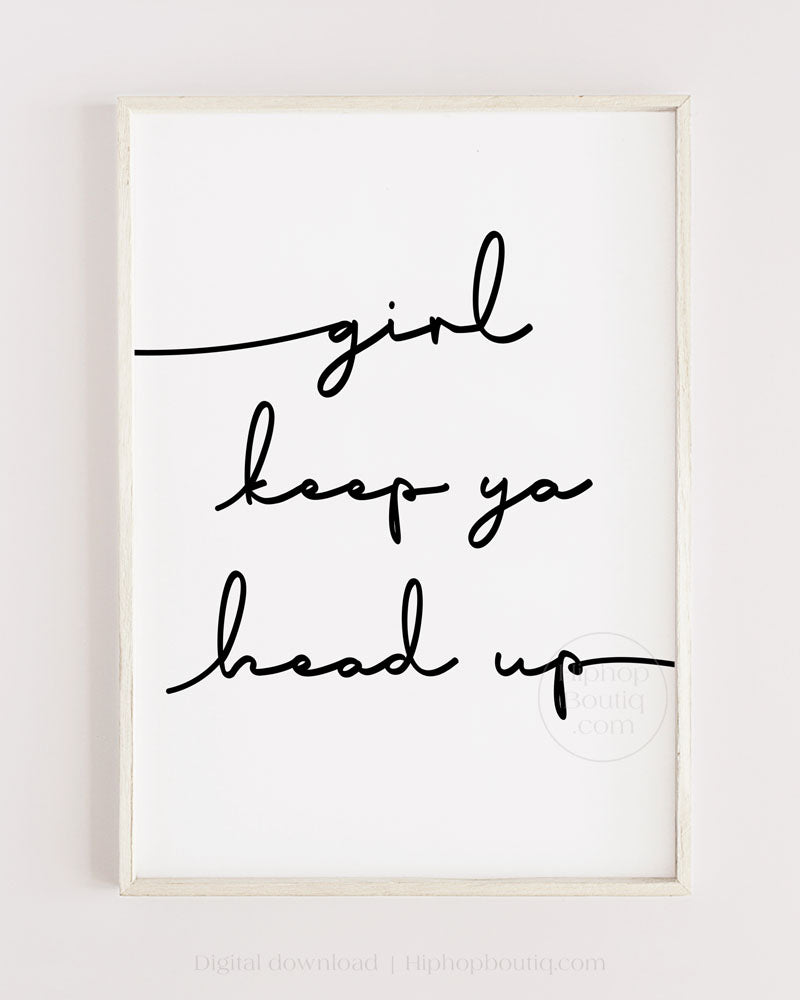 girl
keep ya
head up
Hiphop
Boutiq
.com
Digital download | Hiphopboutiq.com